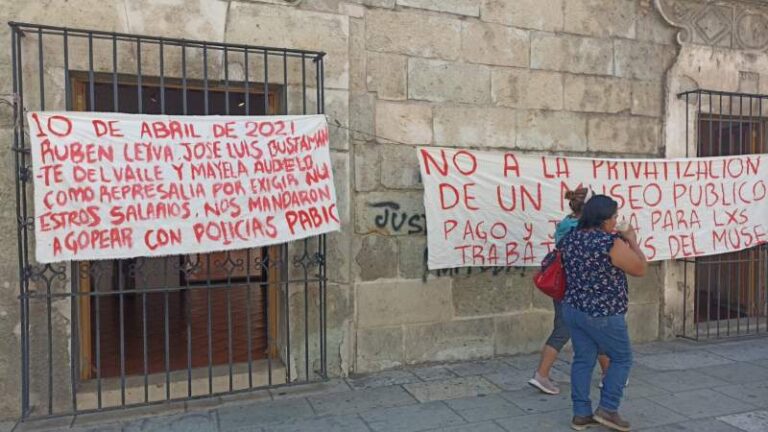 10 DE ABRIL DE 2021
RUBEN LEYVA, JOSE LUIS BUSTAMAN-
TE DEL VALLE Y MAYELA AUDELO
COMO REPRESALIA POR EXIGIR NU
ESTROS SALARIOS, NOS MANDARON
A GOPEAR CON POLICIAS PABIC
NO A LA PRIVATIZACION
DE UN MUSEO PUBLICO
PAGO Y PARA LXS
DEL MUSE